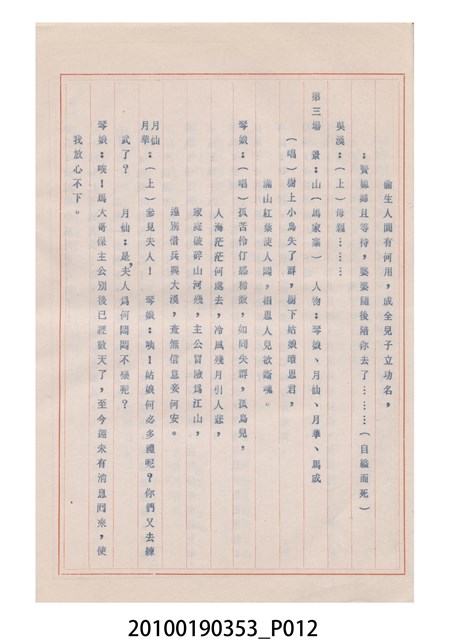 偷生人間有何用，成全兒子立功名，
：賢媳婦且等待，婆婆隨後陪你去了………（自縊而死）
吳漢：（上）母親………
第三場　景：山（馬家寨）　人物：琴娘、月仙、月華、馬成
（唱）樹上小鳥失了群，樹下姑娘墳思君，
滿山紅葉使人悶，相思人兒欲斷魂。
琴娘：（唱）孤苦伶仃孤稀獄，如同失群，孤鳥兒，
人海茫茫何處去，冷風殘月引人悲，
家庭破碎山河殘，主公冒險為江山，
遠別借兵與大漢，查無信息妾何安。
月仙
月華：（上）參見夫人！　琴娘：唉！姑娘何必多禮呢？你們又去練
武了？　月仙：是，夫人為何悶悶不樂呢？
琴娘：唉！馬大哥保主公別後已經數天了，至今還未有消息囘來，使
我放心不下。
20100190353_P012